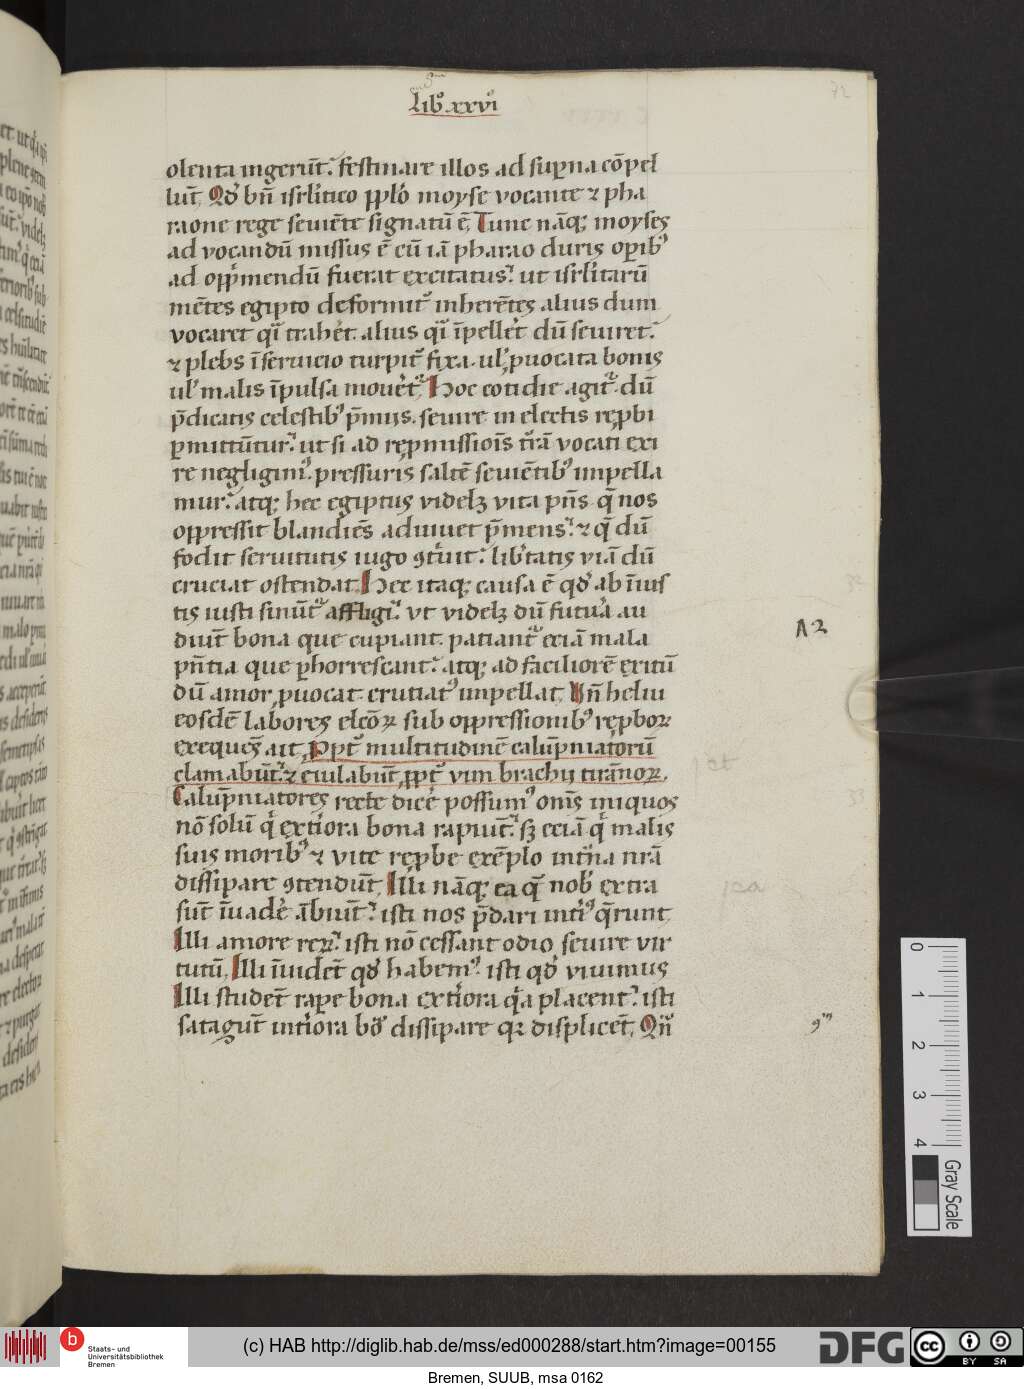 Lib⁹ xxvi
72
olenta ingerūt. festinare illos ad sup̱na cōpel
lūt. Qđ bn̄ isrl̓itico pp̱lo moyse vocante ⁊ pha
raone rege seuiēte signatū ē. Tunc nāq; moyses
ad vocandū missus ē cū iā pharao duris op̱ib⁹
ad opp̓mendū fuerat excitatus. ut isrl̓itarū
mētes egipto deformit̓ inherētes alius dum
vocaret qi̓ trahe͛t. alius qi̓ īpelle͛t dū seuiret.
⁊ plebs ī seruicio turpit̓ fixa. ul̓ ꝓuocata bonis
ul̓ malis īpulsa moue͛t̓. Hoc cotidie agit̓. dū
p̄dicatis celestib⁹ p̄mijs. seuire in electis rep̱bi
ꝑmittūtur. ut si ad rep̱missiōis t̓rā vocati exi
re negligim⁹. pressuris saltē seuiētib⁹ impella
mur. atq; hec egiptus videlꝫ vita pn̄s q̄ nos
oppressit blandiēs adiuuet p̄mens. ⁊ q̄ dū
fodit seruitutis iugo ꝯt̓uit. lib̓tatis viā dū
cruciat ostendat. Hec itaq; causa ē qđ ab īius
tis iusti sinūt̓ affligi. vt videlꝫ dū futura au
diūt bona que cupiant. patiant̓ eciā mala
pn̄tia que ꝑhorrescant. atq; ad faciliorē exitū
dū amor ꝓuocat. crutiat⁹ impellat. Un̄ heliu
eosdē labores elcōꝝ sub oppressionib⁹ rep̱boꝝ
exequēs ait. Ꝓpt̓ multitudinē calūpniatorū
clamabūt. ⁊ eiulabūt ꝓpt̓ vim brachij tirānoꝝ.
Calūpniatores recte dice͛ possum⁹ om̄s iniquos
nō solū q̓ ext̓iora bona rapiūt. sꝫ eciā q̓ malis
suis morib⁹ ⁊ vite rep̱be exēplo int̓na nr̄ā
dissipare ꝯtendūt. Illi nāq; ea q̄ nob̓ extra
sūt īuade͛ ābiūt. isti nos p̄dari int̓i⁹ q̄runt
Illi amore reꝝ. isti nō cessant odio seuire vir
tutū. Illi īuidēt qđ habem⁹. isti qđ viuimus
Illi studēt rape̱ bona ext̓iora q̓a placent. isti
satagūt int̓iora bō dissipare qꝛ displicēt. Qn̄
A2
9m
0
1
2
3
4
Gray Scale
Staats- und
Universitätsbibliothek
Bremen
(c) HAB http://diglib.hab.de/mss/ed000288/start.htm?image=00155
DFG
cc
BY SA
Bremen, SUUB, msa 0162